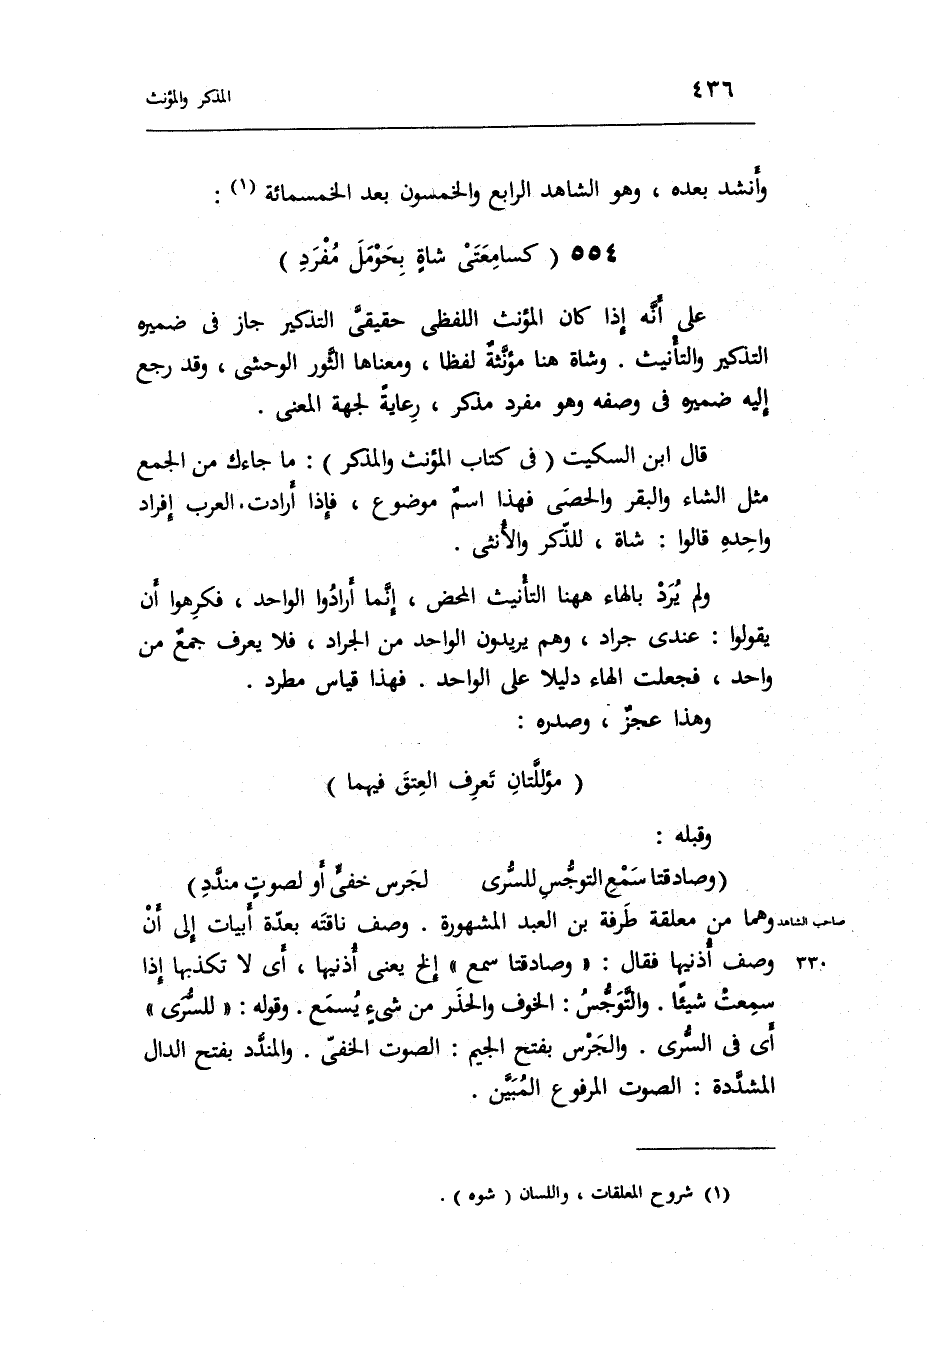 ٤٣٦
المذكر والمؤنث
وأَنشد بعده ، وهو الشاهد الرابع والخمسون بعد الخمسمائة (١) :
٥٥٤ ( كسامِعَتَىْ شاةٍ بِحَوْمَلَ مُفْرَدِ )
على أَنَّه إذا كان المؤنث اللفظى حقيقىَّ التذكير جاز فى ضميره
التذكير والتأْنيث . وشاة هنا مؤنَّثةٌ لفظا ، ومعناها الثَّور الوحشى ، وقد رجع
إليه ضميره فى وصفه وهو مفرد مذكر ، رِعايةً لجهة المعنى .
قال ابن السكيت ( فى كتاب المؤنث والمذكر ) : ما جاءك من الجمع
مثل الشاء والبقر والحصَى فهذا اسمٌ موضوع ، فإذا أَرادت العرب إفراد
واحِدهِ قالوا : شاة ، للذّكر والأُنثى .
ولم يُرَدْ بالهاء ههنا التأْنيث المحض ، إنَّما أَرادُوا الواحد ، فكرِهوا أَن
يقولوا : عندى جراد ، وهم يريدون الواحد من الجراد ، فلا يعرف جمعٌ من
واحد ، فجعلت الهاء دليلا على الواحد . فهذا قياس مطرد .
وهذا عجزٌ ، وصدره :
( مؤللَّتانِ تَعرِف العِتقَ فيهما )
وقبله :
(وصادقتا سَمْعِ التوجُّسِ للسُّرى لجَرس خفىٍّ أَو لصوتٍ مندَّدِ )
صاحب الشاهد وهما من معلقة طَرفة بن العبد المشهورة . وصف ناقتَه بعدّة أَبيات إلى أَنْ
٣٣٠ وصف أُذنيها فقال : « وصادقتا سمع » إلخ يعنى أُذنيها ، أَى لا تكذبها إذا
سمِعتْ شيئًا . والتَّوَجُّسُ : الخوف والحذَر من شىءٍ يُسمَع . وقوله : « للسُّرَى »
أَى فى السُّرى . والجَرْس بفتح الجيم : الصوت الخفىّ . والمندَّد بفتح الدال
المشدَّدة : الصوت المرفوع المُبَيَّن .
(١) شروح المعلقات ، واللسان ( شوه ) .